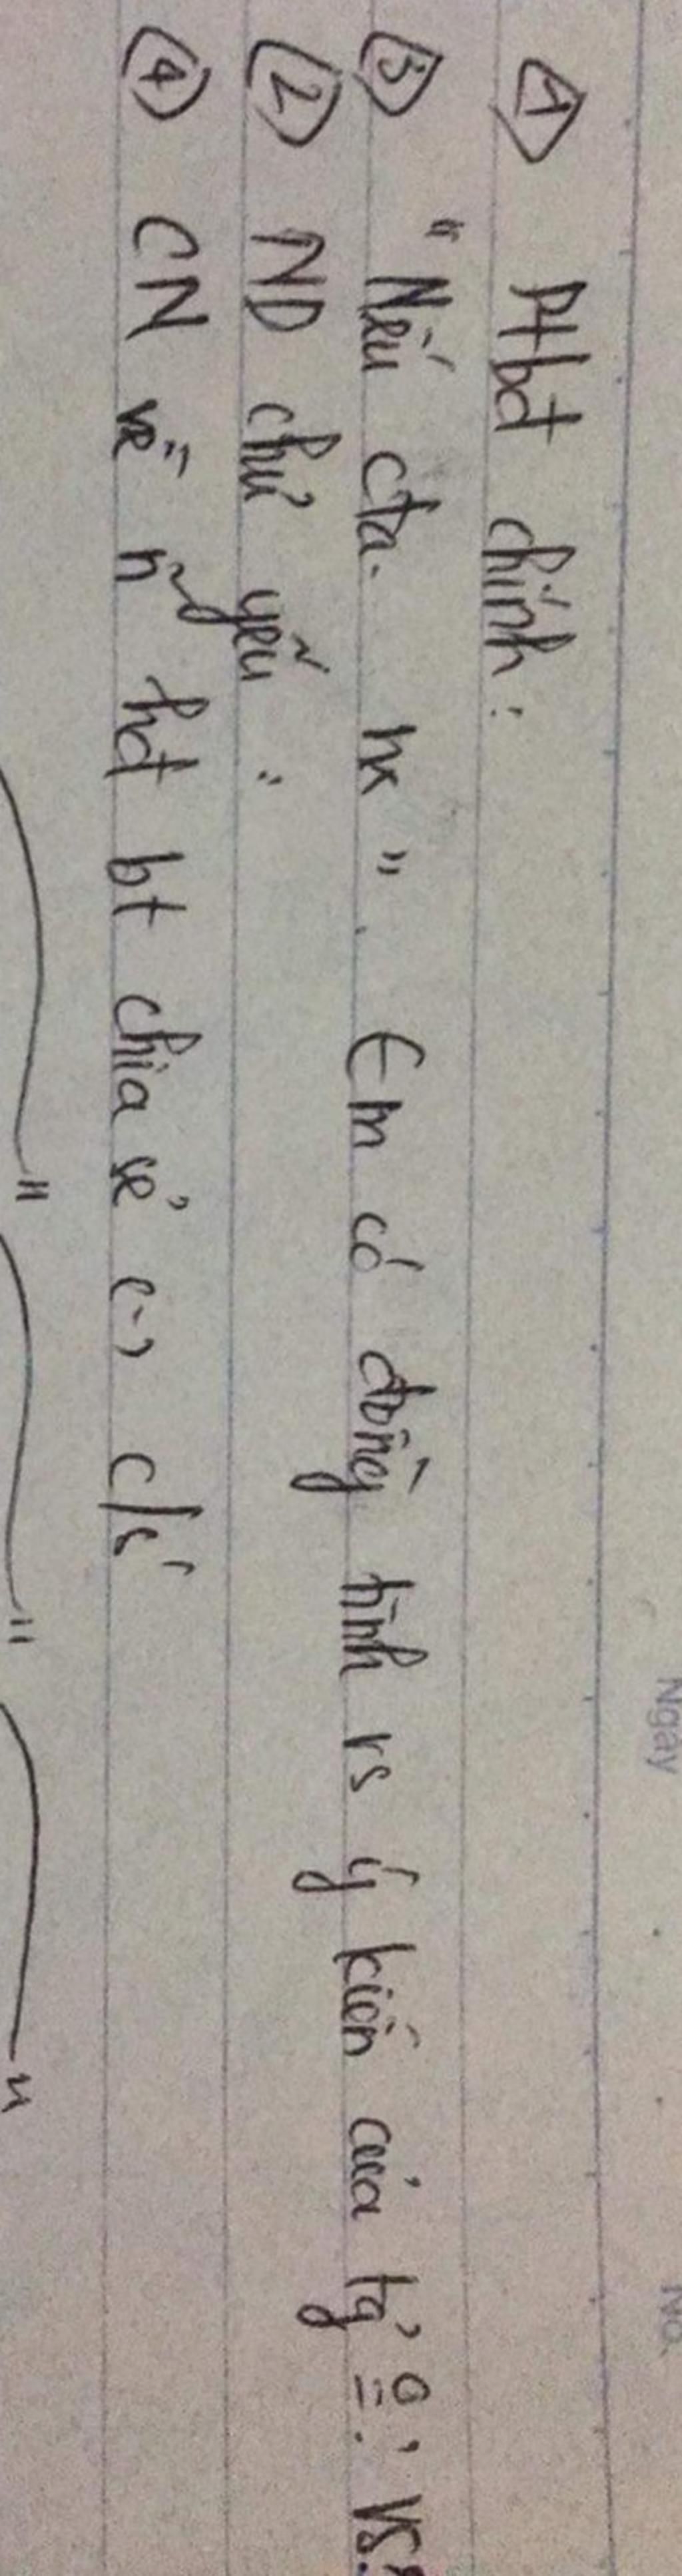 Ngày
No.
① Ptbđ chính:
③ "Nếu cta. hk". Em có đồng tình vs ý kiến của tg' o: vs?
② ND chủ yếu:
④ CN về n~ hđ bt chia sẻ (-) c/s'